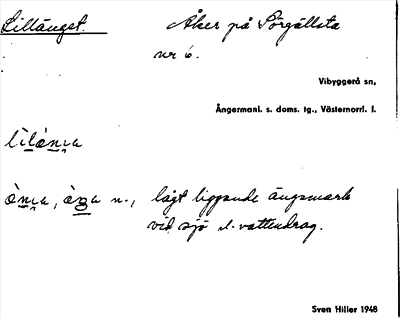 Lillänget. Åker på Sörgällsta
nr 6.
Vibyggerå sn,
Ångermanl. s. doms. tg., Västernorrl. l.
lìlánıa
ànıa, àꝫa n., lågt liggande ängsmark
vid sjö l. vattendrag.
Sven Hiller 1948